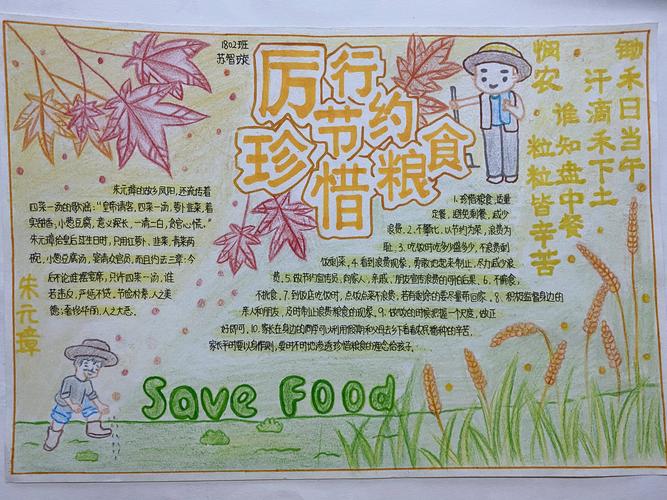 1802班
苏智璇
厉行节约
珍惜粮食
悯农
锄禾日当午
汗滴禾下土
谁知盘中餐
粒粒皆辛苦
朱元璋的故乡凤阳，还流传着
四菜一汤的歌谣：“皇帝请客，四菜一汤，萝卜韭菜，着
实甜香，小葱豆腐，意义深长，一清二白，贪官心慌。”
朱元璋给皇后过生日时，只用红萝卜、韭菜，青菜两
碗，小葱豆腐汤，宴请众官员，而且约法三章：今
后不论谁摆宴席，只许四菜一汤，谁
若违反，严惩不贷。节俭朴素，人之美
德；奢侈华丽，人之大恶。
朱元璋
1.珍惜粮食，适量
定餐，避免剩餐，减少
浪费。2.不攀比，以节约为荣，浪费为
耻。3.吃饭时吃多少盛多少，不浪费剩
饭剩菜。4.看到浪费现象，勇敢地起来制止，尽力减少浪
费。5.做节约宣传员，向家人，亲戚，朋友宣传浪费的可怕后果。6.不偏食，
不挑食。7.到饭店吃饭时，点饭点菜不浪费，若有剩余的要尽量带回家。8.积极监督身边的
亲人和朋友，及时制止浪费粮食的现象。9.做饭的时候把握一个尺度，做正
好即可。10.家长在身边的同学可以利用假期和父母去乡下看看农民播种的辛苦，
家长平时要以身作则，要时不时地渗透珍惜粮食的理念给孩子。
Save Food